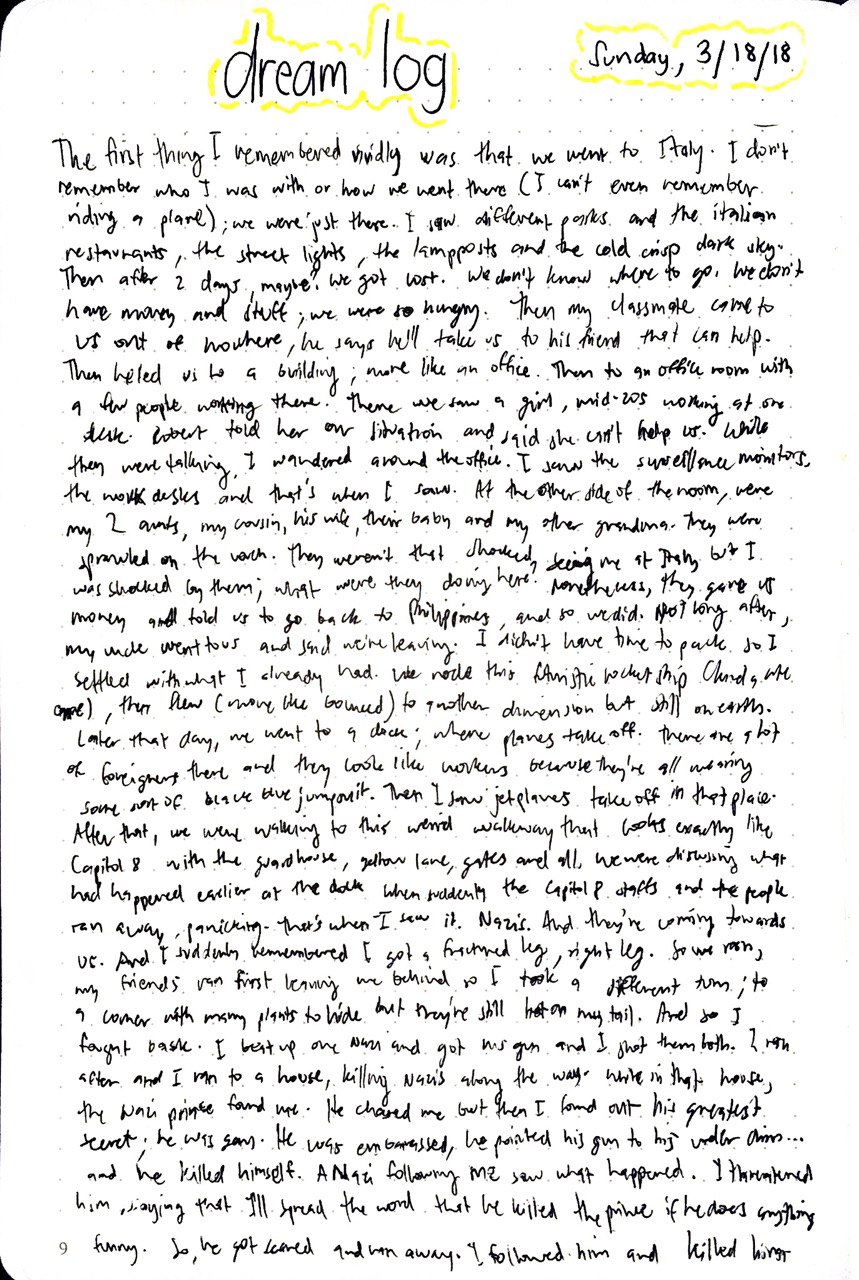 dream log
Sunday, 3/18/18
The first thing I remembered vividly was that we went to Italy. I don't
remember who I was with or how we went there (I can't even remember
riding a plane); we were just there. I saw different parks and the italian
restaurants, the street lights, the lampposts and the cold crisp dark sky.
Then after 2 days, maybe? we got lost. We don't know where to go. We don't
have money and stuff; we were so hungry. Then my classmate came to
us out of nowhere, he says he'll take us to his friend that can help.
Then he led us to a building; more like an office. Then to an office room with
a few people working there. There we saw a girl, mid-20s working at one
desk. Robert told her our situation and said she can't help us. While
they were talking, I wandered around the office. I saw the surveillance monitors,
the work desks and that's when I saw. At the other side of the room, were
my 2 aunts, my cousin, his wife, their baby and my other grandma. They were
sprawled on the couch. They weren't that shocked, seeing me at Italy but I
was shocked by them; what were they doing here. Nonetheless, they gave us
money and told us to go back to Philippines, and so we did. Not long after,
my uncle went to us and said we're leaving. I didn't have time to pack so I
settled with what I already had. We rode this futuristic rocket ship
), then flew (more like bounced) to another dimension but still on earth.
Later that day, we went to a dock; where planes take off. There are a lot
of foreigners there and they look like workers because they're all wearing
some sort of blue jumpsuit. Then I saw jetplanes take off in that place.
After that, we were walking to this weird walkway that looks exactly like
Capitol 8 with the guardhouse, yellow lane, gates and all. We were discussing what
had happened earlier at the dock when suddenly the Capitol 8 staffs and the people
ran away, panicking. That's when I saw it. Nazis. And they're coming towards
us. And I suddenly remembered I got a fractured leg, right leg. So we ran,
my friends ran first leaving me behind so I took a different turn; to
a corner with many plants to hide but they're still hot on my tail. And so I
fought back. I beat up one Nazi and got his gun and I shot them both. I ran
after and I ran to a house, killing Nazis along the way. While in that house,
the Nazi prince found me. He chased me but then I found out his greatest
secret; he was gay. He was embarassed, he pointed his gun to his under chin...
and he killed himself. A Nazi following me saw what happened. I threatened
him, saying that I'll spread the word that he killed the prince if he does anything
funny. So, he got scared and ran away. I followed him and killed him
9